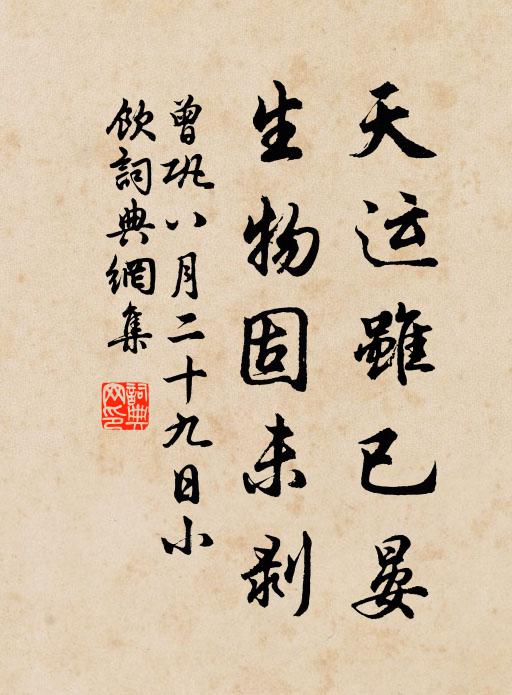 天运雖已晏
生物固未剥
曾巩八月二十九日小
飲詞典網集
詞典
网印